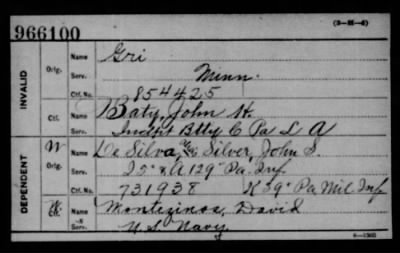 (3-M-4)
966100
INVALID
Orig. Name Gri
Serv. Minn.
Ctf. No. 854425
Ctf. Name Baty, John H.
Serv. Indpt Btty C Pa L A
DEPENDENT
W Orig. Name De Silva, or Silver, John S.
Serv. I 25" & A 129" Pa. Inf
Ctf. No. 731938 H 39" Pa Mil Inf
W. Ctf. Name Montezinos, David
Serv. U.S. Navy